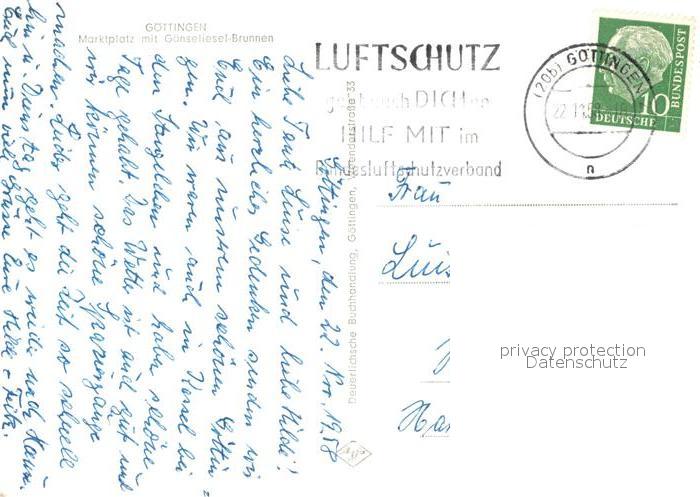 GÖTTINGEN
Marktplatz mit Gänseliesel-Brunnen
LUFTSCHUTZ
geht auch DICH an
HILF MIT im
Bundesluftschutzverband
(20b) GÖTTINGEN
n
10
DEUTSCHE
BUNDESPOST
Göttingen, den 22. Nov. 1958
Liebe Tante Luise und liebe Hilde!
Ein herzliches Gedenken senden wir
Euch aus unserem schönen Göttin-
gen. Wir waren auch in Kassel bei
den und haben schöne
Tage gehabt. Das Wetter ist auch gut und
wir können schöne Spaziergänge
machen. Leider geht die Zeit so schnell
hin u. Dienstag geht es wieder nach Hann.
Euch nun viel Grüsse Eure Hilde + Fritz.
Deuerlichsche Buchhandlung, Göttingen, Weenderstraße 33
Frau
Luis
Han
privacy protection
Datenschutz